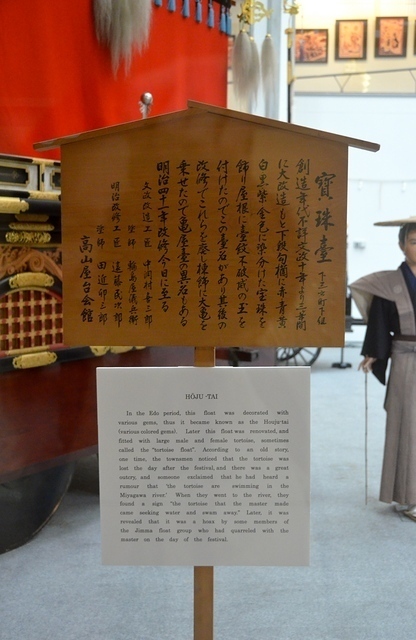 寶珠臺 下三之町下組
創造年代不詳文政十年より三年間
に大改造もと下段勾欄に赤青黄
白黒紫金色に染分けた宝珠を
飾り屋根に壹政不破成の玉を
付けたのでこの臺名があり其後の
改修でこれらを廃し棟飾に大亀を
乗せたので亀屋臺の異名もある
明治四十一年改修今日に至る
文政改造工匠 中洞村喜三郎
明治改修工匠 遠藤民次郎
塗師 田近卯之郎
高山屋台会館
HŌJU-TAI
In the Edo period, this float was decorated with
various gems, thus it became known as the Houju-tai
(various colored gems). Later this float was renovated, and
fitted with large male and female tortoise, sometimes
called the "tortoise float". According to an old story,
one time, the townsmen noticed that the tortoise was
lost the day after the festival, and there was a great
outcry, and someone exclaimed that he had heard a
rumour that 'the tortoise are swimming in the
Miyagawa river.' When they went to the river, they
found a sign "the tortoise that the master made
came seeking water and swam away." Later, it was
revealed that it was a hoax by some members of
the Jimma float group who had quarreled with the
master on the day of the festival.